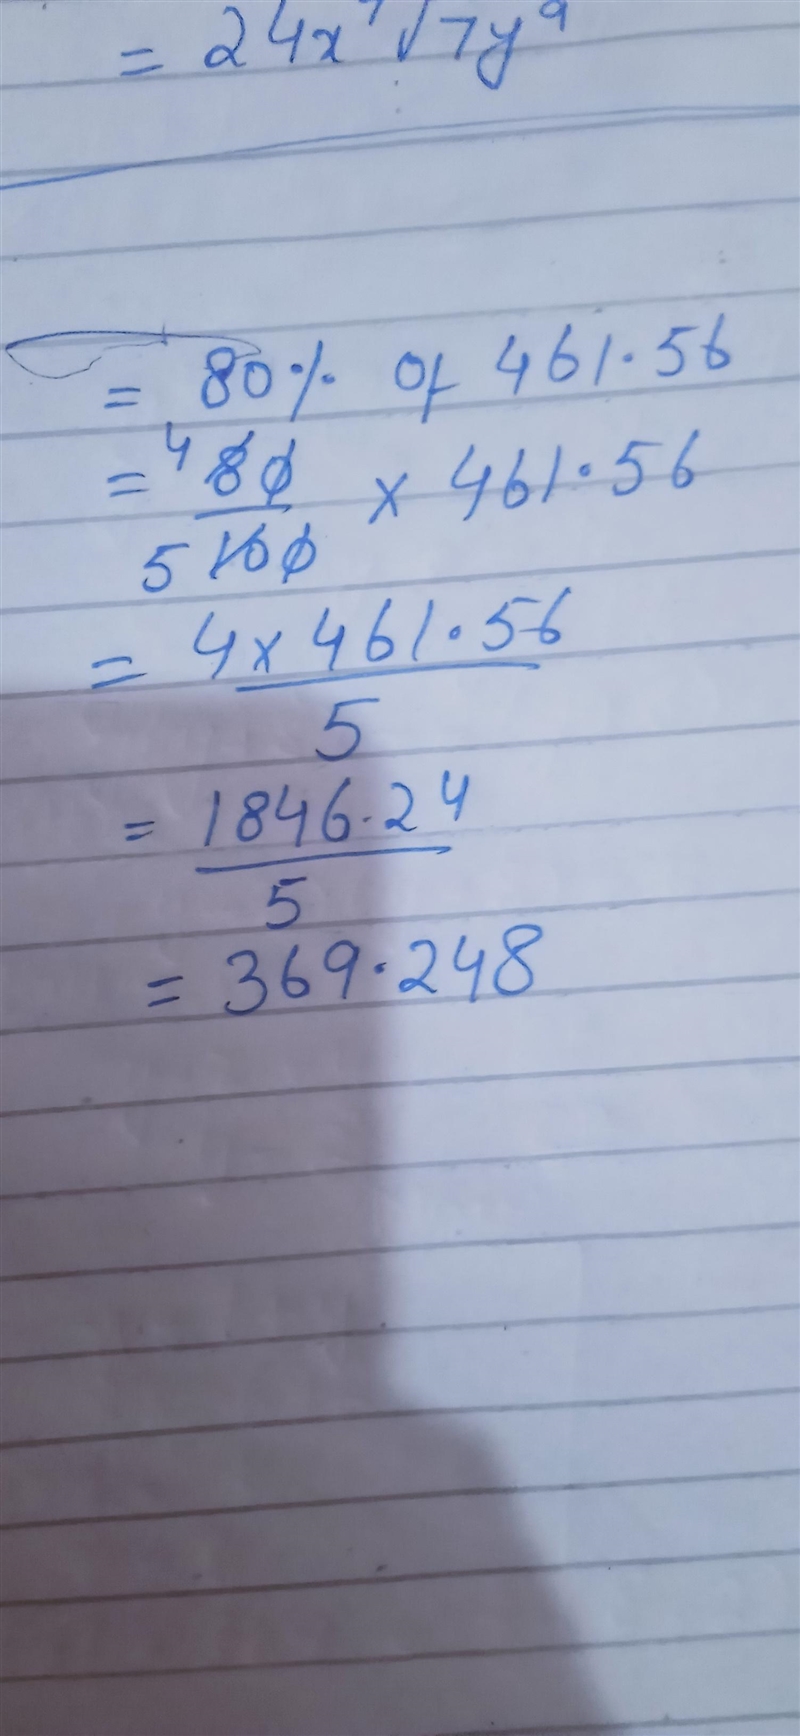 = 24x⁷√7y⁹
= 80% of 461.56
= ⁴80/5 100 × 461.56
= 4 × 461.56 / 5
= 1846.24 / 5
= 369.248